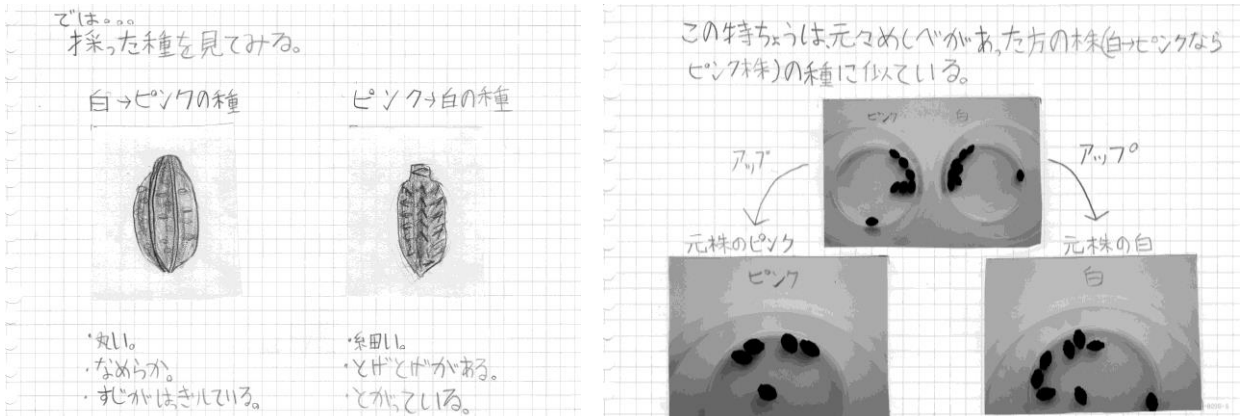 では。。。
採った種を見てみる。
白→ピンクの種
ピンク→白の種
・丸い。
・なめらか。
・すじがはっきりしている。
・細い。
・とげとげがある。
・とがっている。
この特ちょうは、元々めしべがあった方の株(白→ピンクなら
ピンク株)の種に似ている。
ピンク
白
アップ
アップ
元株のピンク
元株の白
ピンク
白